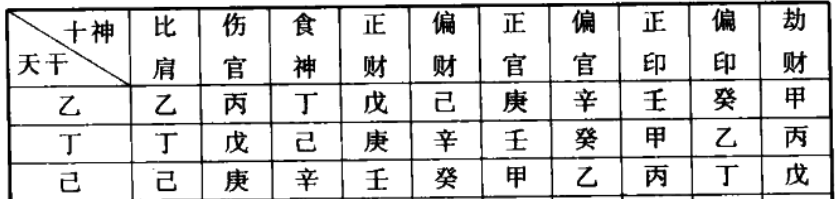 十神 比肩 伤官 食神 正财 偏财 正官 偏官 正印 偏印 劫财
天干
乙 乙 丙 丁 戊 己 庚 辛 壬 癸 甲
丁 丁 戊 己 庚 辛 壬 癸 甲 乙 丙
己 己 庚 辛 壬 癸 甲 乙 丙 丁 戊